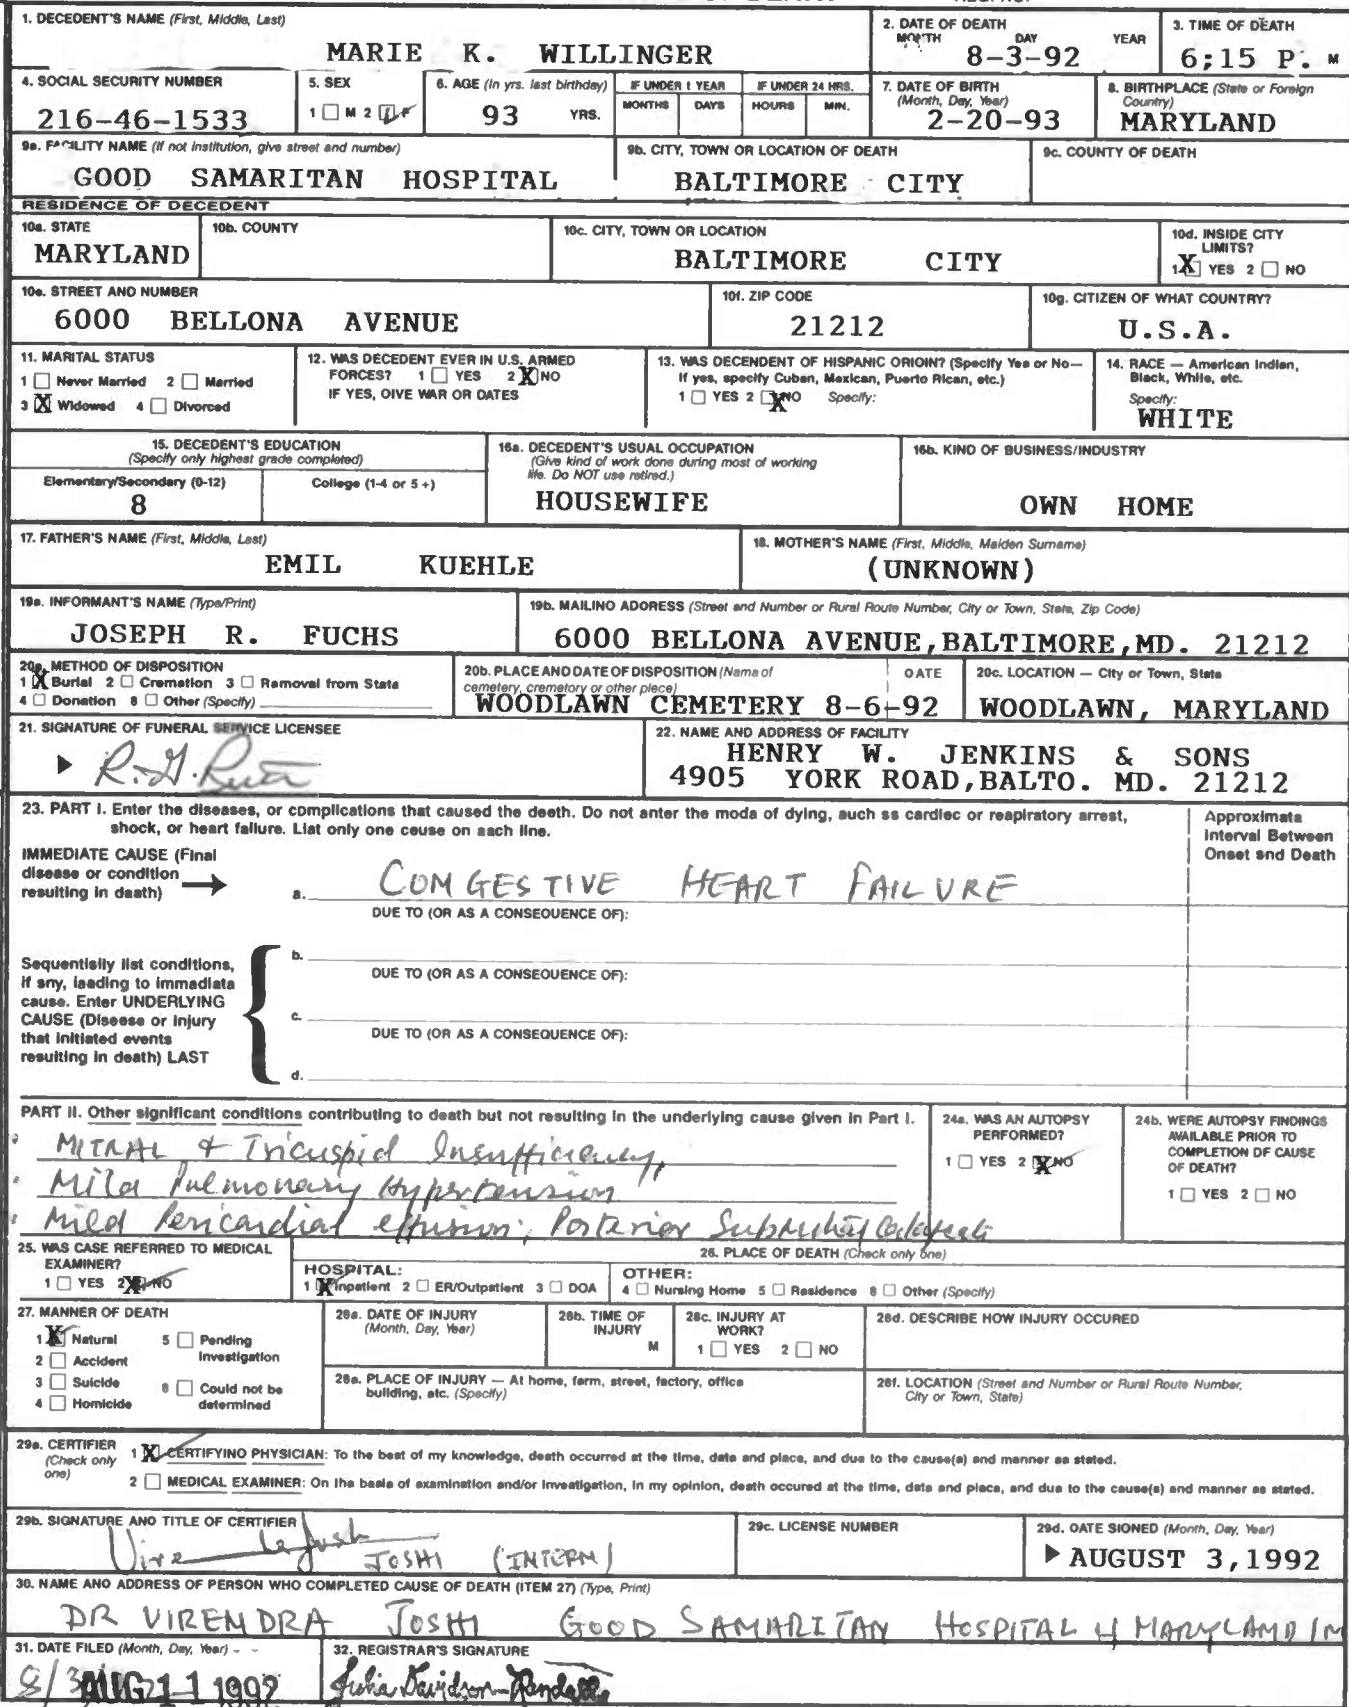 1. DECEDENT'S NAME (First, Middle, Last)
MARIE K. WILLINGER
2. DATE OF DEATH
MONTH DAY YEAR
8-3-92
3. TIME OF DEATH
6;15 P. M
4. SOCIAL SECURITY NUMBER
216-46-1533
5. SEX
1 M 2 F
6. AGE (In yrs. last birthday)
93 YRS.
IF UNDER 1 YEAR
MONTHS DAYS
IF UNDER 24 HRS.
HOURS MIN.
7. DATE OF BIRTH
(Month, Day, Year)
2-20-93
8. BIRTHPLACE (State or Foreign
Country)
MARYLAND
9a. FACILITY NAME (If not institution, give street and number)
GOOD SAMARITAN HOSPITAL
9b. CITY, TOWN OR LOCATION OF DEATH
BALTIMORE CITY
9c. COUNTY OF DEATH
RESIDENCE OF DECEDENT
10a. STATE
MARYLAND
10b. COUNTY
10c. CITY, TOWN OR LOCATION
BALTIMORE CITY
10d. INSIDE CITY
LIMITS?
1 X YES 2 NO
10e. STREET AND NUMBER
6000 BELLONA AVENUE
10f. ZIP CODE
21212
10g. CITIZEN OF WHAT COUNTRY?
U.S.A.
11. MARITAL STATUS
1 Never Married 2 Married
3 X Widowed 4 Divorced
12. WAS DECEDENT EVER IN U.S. ARMED
FORCES? 1 YES 2 X NO
IF YES, GIVE WAR OR DATES
13. WAS DECENDENT OF HISPANIC ORIGIN? (Specify Yes or No—
If yes, specify Cuban, Mexican, Puerto Rican, etc.)
1 YES 2 X NO Specify:
14. RACE — American Indian,
Black, White, etc.
Specify:
WHITE
15. DECEDENT'S EDUCATION
(Specify only highest grade completed)
Elementary/Secondary (0-12) College (1-4 or 5 +)
8
16a. DECEDENT'S USUAL OCCUPATION
(Give kind of work done during most of working
life. Do NOT use retired.)
HOUSEWIFE
16b. KIND OF BUSINESS/INDUSTRY
OWN HOME
17. FATHER'S NAME (First, Middle, Last)
EMIL KUEHLE
18. MOTHER'S NAME (First, Middle, Maiden Surname)
(UNKNOWN)
19a. INFORMANT'S NAME (Type/Print)
JOSEPH R. FUCHS
19b. MAILING ADDRESS (Street and Number or Rural Route Number, City or Town, State, Zip Code)
6000 BELLONA AVENUE,BALTIMORE,MD. 21212
20a. METHOD OF DISPOSITION
1 X Burial 2 Cremation 3 Removal from State
4 Donation 8 Other (Specify)
20b. PLACE AND DATE OF DISPOSITION (Name of
cemetery, crematory or other place) DATE
WOODLAWN CEMETERY 8-6-92
20c. LOCATION — City or Town, State
WOODLAWN, MARYLAND
21. SIGNATURE OF FUNERAL SERVICE LICENSEE
22. NAME AND ADDRESS OF FACILITY
HENRY W. JENKINS & SONS
4905 YORK ROAD,BALTO. MD. 21212
23. PART I. Enter the diseases, or complications that caused the death. Do not enter the mode of dying, such as cardiac or respiratory arrest,
shock, or heart failure. List only one cause on each line.
Approximate
Interval Between
Onset and Death
IMMEDIATE CAUSE (Final
disease or condition
resulting in death)
a. COMGESTIVE HEART FAILURE
DUE TO (OR AS A CONSEQUENCE OF):
Sequentially list conditions,
if any, leading to immediate
cause. Enter UNDERLYING
CAUSE (Disease or injury
that initiated events
resulting in death) LAST
b.
DUE TO (OR AS A CONSEQUENCE OF):
c.
DUE TO (OR AS A CONSEQUENCE OF):
d.
PART II. Other significant conditions contributing to death but not resulting in the underlying cause given in Part I.
MITRAL & Tricuspid Insufficiency,
Mild Pulmonary Hypertension
Mild Pericardial effusion; Posterior
24a. WAS AN AUTOPSY
PERFORMED?
1 YES 2 X NO
24b. WERE AUTOPSY FINDINGS
AVAILABLE PRIOR TO
COMPLETION OF CAUSE
OF DEATH?
1 YES 2 NO
25. WAS CASE REFERRED TO MEDICAL
EXAMINER?
1 YES 2 X NO
26. PLACE OF DEATH (Check only one)
HOSPITAL:
1 X Inpatient 2 ER/Outpatient 3 DOA
OTHER:
4 Nursing Home 5 Residence 6 Other (Specify)
27. MANNER OF DEATH
1 X Natural 5 Pending
Investigation
2 Accident
3 Suicide 6 Could not be
determined
4 Homicide
28a. DATE OF INJURY
(Month, Day, Year)
28b. TIME OF
INJURY
M
28c. INJURY AT
WORK?
1 YES 2 NO
28d. DESCRIBE HOW INJURY OCCURED
28e. PLACE OF INJURY — At home, farm, street, factory, office
building, etc. (Specify)
28f. LOCATION (Street and Number or Rural Route Number,
City or Town, State)
29a. CERTIFIER
(Check only
one)
1 X CERTIFYING PHYSICIAN: To the best of my knowledge, death occurred at the time, date and place, and due to the cause(s) and manner as stated.
2 MEDICAL EXAMINER: On the basis of examination and/or investigation, in my opinion, death occured at the time, date and place, and due to the cause(s) and manner as stated.
29b. SIGNATURE AND TITLE OF CERTIFIER
JOSHI (INTERN)
29c. LICENSE NUMBER
29d. DATE SIGNED (Month, Day, Year)
AUGUST 3,1992
30. NAME AND ADDRESS OF PERSON WHO COMPLETED CAUSE OF DEATH (ITEM 27) (Type, Print)
DR VIRENDRA JOSHI GOOD SAMARITAN HOSPITAL MARYLAND
31. DATE FILED (Month, Day, Year)
AUG 11 1992
32. REGISTRAR'S SIGNATURE
Julia Davidson-Randall